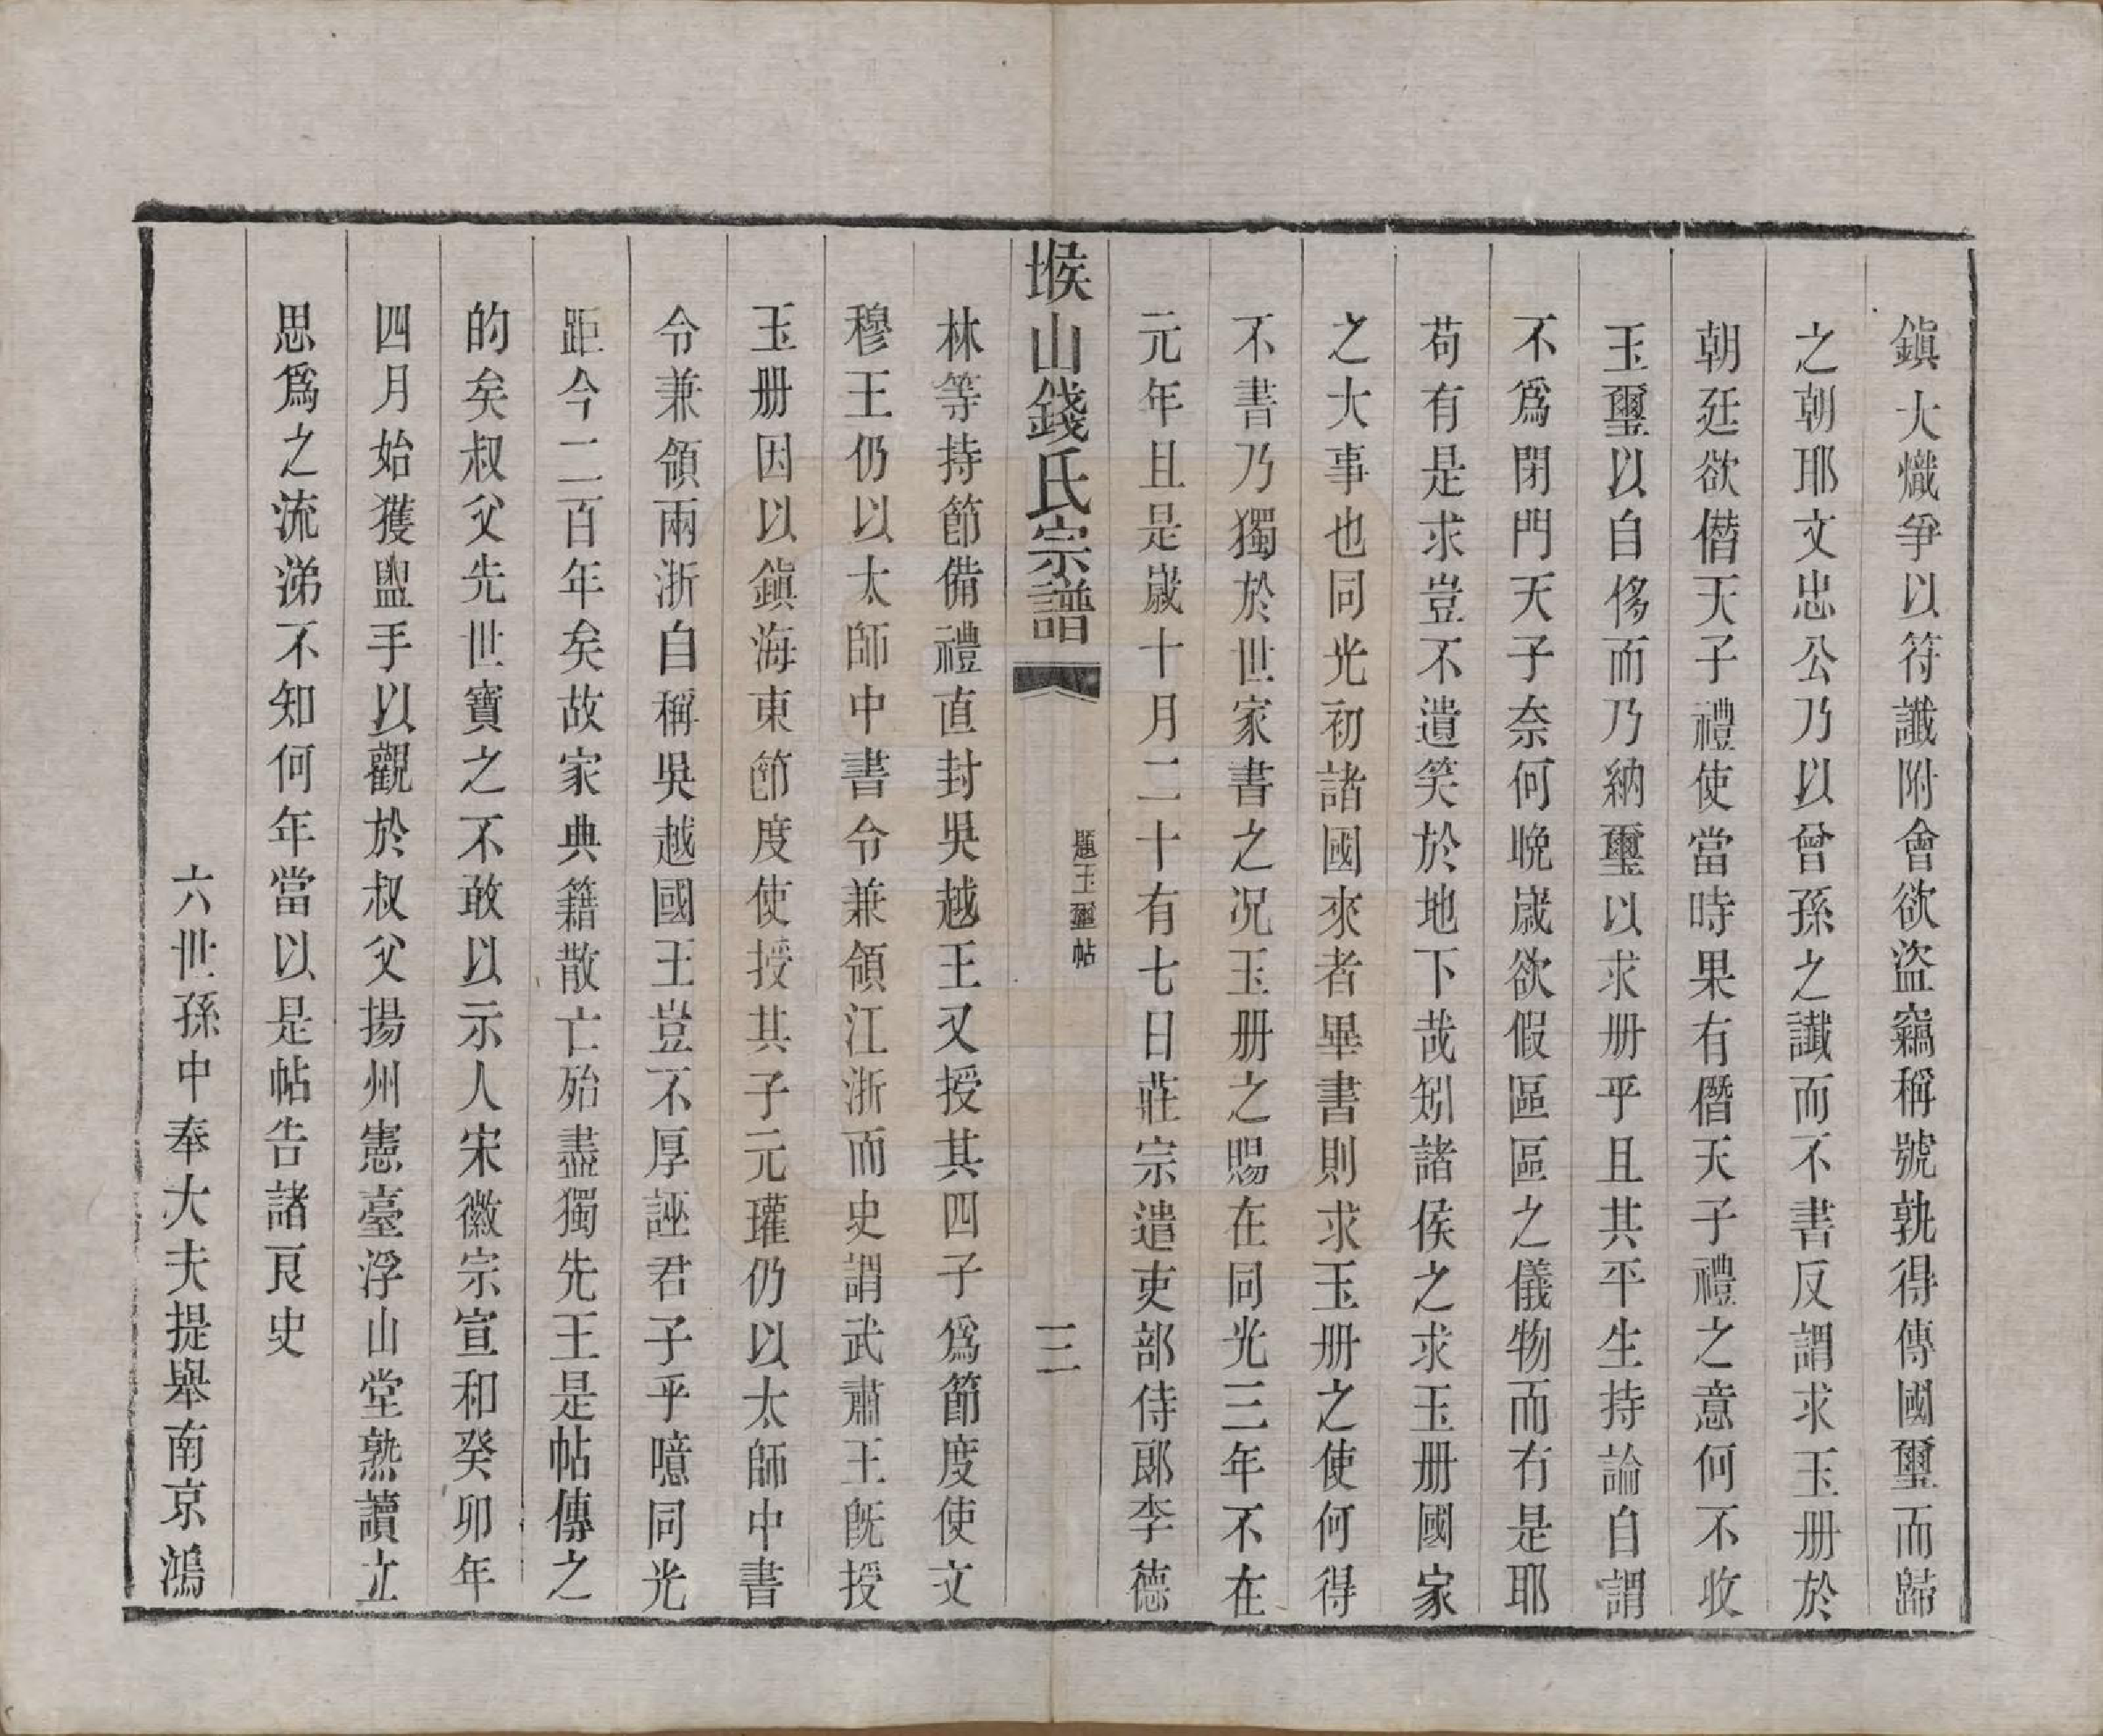 鎭大熾爭以符讖附會欲盜竊稱號孰得傳國璽而歸
之朝耶文忠公乃以曾孫之讖而不書反謂求玉册於
朝廷欲僭天子禮使當時果有僭天子禮之意何不收
玉璽以自侈而乃納璽以求册乎且其平生持論自謂
不爲閉門天子奈何晚歲欲假區區之儀物而冇是耶
苟有是求豈不遺笑於地下哉矧諸侯之求玉册國家
之大事也同光初諸國來者畢書則求玉册之使何得
不書乃獨於世家書之况玉册之賜在同光三年不在
元年且是歲十月二十有七日莊宗遣吏部侍郎李德
堠山錢氏宗譜
題玉璽帖
三
林等持節備禮直封吳越王又授其四子爲節度使文
穆王仍以太師中書令兼領江浙而史謂武肅王旣授
玉册因以鎭海東節度使授其子元瓘仍以太師中書
令兼領兩浙自稱吳越國王豈不厚誣君子乎噫同光
距今二百年矣故家典籍散亡殆盡獨先王是帖傳之
的矣叔父先世寶之不敢以示人宋徽宗宣和癸卯年
四月始獲盥手以觀於叔父揚州憲臺浮山堂熟讀立
思爲之流涕不知何年當以是帖告諸良史
六世孫中奉大夫提舉南京鴻